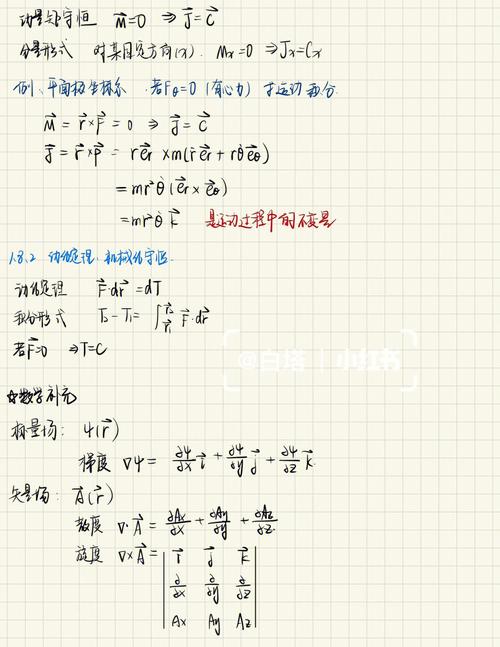 动量矩守恒 $\vec{M}=0 \Rightarrow \vec{J}=\vec{C}$
分量形式 对某固定方向(x). $M_x=0 \Rightarrow J_x=C_x$
例、平面极坐标系 若$F_\theta=0$ (有心力) 求运动积分.
$\vec{M}=\vec{r}\times\vec{F}=0 \Rightarrow \vec{J}=\vec{C}$
$\vec{J}=\vec{r}\times\vec{p}=r\vec{e_r}\times m(\dot{r}\vec{e_r}+r\dot{\theta}\vec{e_\theta})$
$=mr^2\dot{\theta}(\vec{e_r}\times\vec{e_\theta})$
$=mr^2\dot{\theta}\vec{k}$ 是运动过程中的不变量
1.8.2 动能定理、机械能守恒.
动能定理 $\vec{F}\cdot d\vec{r}=dT$
积分形式 $T_2-T_1=\int_{\vec{r_1}}^{\vec{r_2}}\vec{F}\cdot d\vec{r}$
若$\vec{F}=0$ $\Rightarrow T=C$
@白塔 | 小红书
☆数学补充
标量场: $\psi(\vec{r})$
梯度 $\nabla\psi=\frac{\partial\psi}{\partial x}\vec{i}+\frac{\partial\psi}{\partial y}\vec{j}+\frac{\partial\psi}{\partial z}\vec{k}$.
矢量场: $\vec{A}(\vec{r})$
散度 $\nabla\cdot\vec{A}=\frac{\partial A_x}{\partial x}+\frac{\partial A_y}{\partial y}+\frac{\partial A_z}{\partial z}$.
旋度 $\nabla\times\vec{A}=\begin{vmatrix}\vec{i}&\vec{j}&\vec{k}\\\frac{\partial}{\partial x}&\frac{\partial}{\partial y}&\frac{\partial}{\partial z}\\A_x&A_y&A_z\end{vmatrix}$